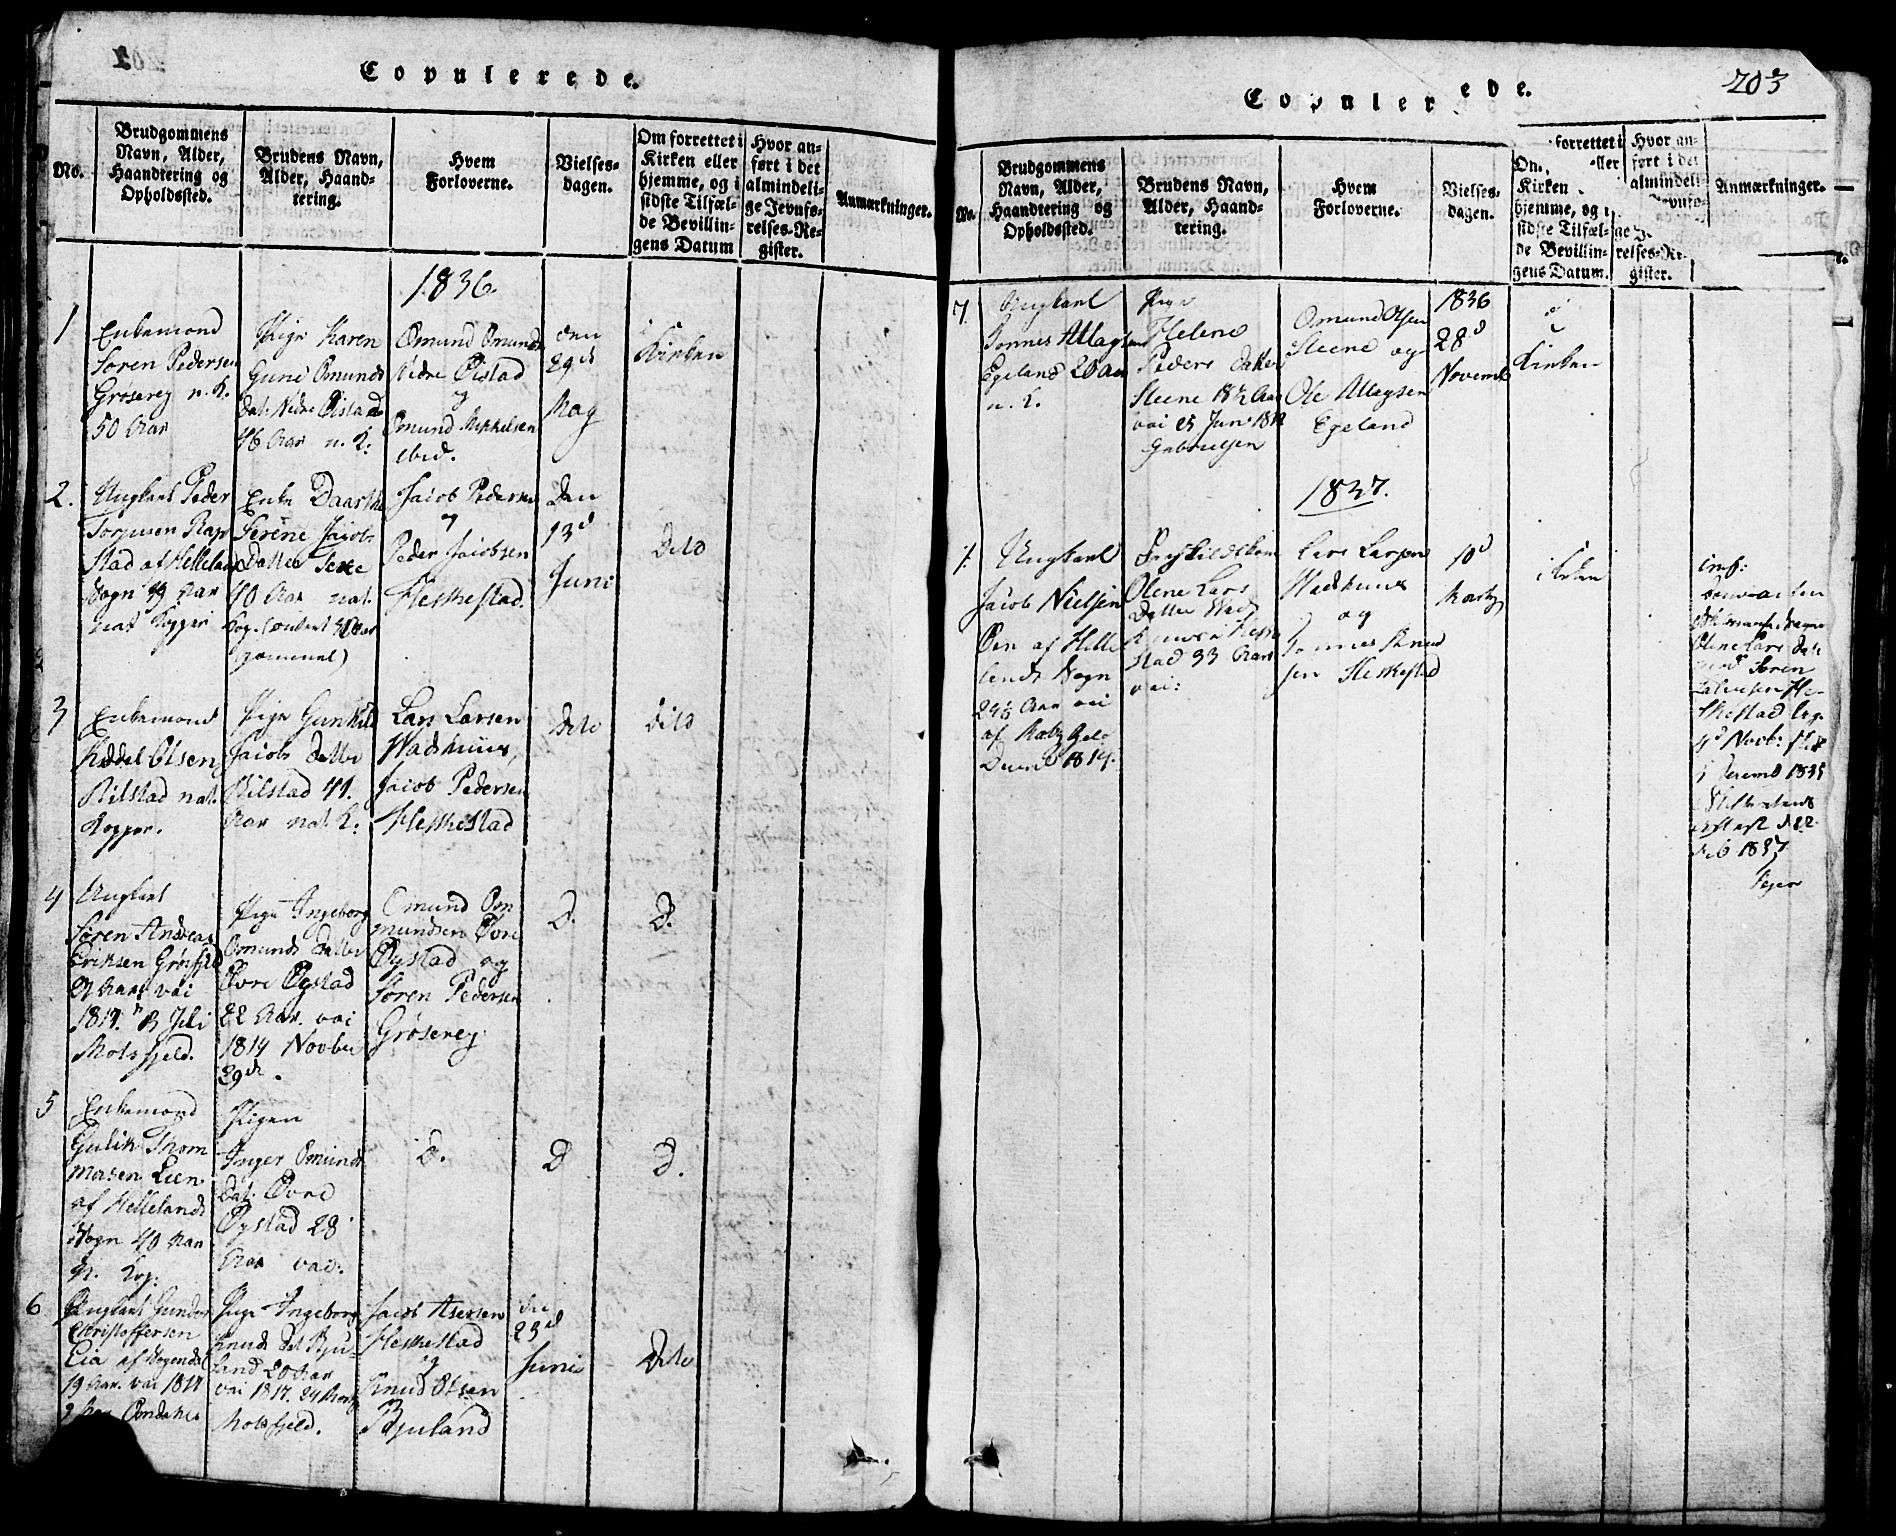 Copulerede.
No.
Brudgommens
Navn, Alder,
Haandtering og
Opholdssted.
Brudens Navn,
Alder, Haand-
tering.
Hvem
Forloverne.
Vielses-
dagen.
Om forrettet i
Kirken eller
hjemme, og i
sidste Tilfæl-
de Bevillin-
gens Datum
Hvor an-
ført i det
almindeli-
ge Jevnfø-
relses-Re-
gister.
Anmærkninger.
1836
1
Enkemand
Søren Pedersen
Grøserey n. K.
50 Aar
Pige Karen
Gurie Omunds
Dat. Nedre Øistad
46 Aar n. K:
Omund Omunds
Nedre Øistad
og
Omund Mikkelsen
ibid.
den
29de
May
i
Kirken
2.
Ungkarl Peder
Torjusen Rap
stad af Helleland
Sogn 49 Aar
nat Kopper
Enke Daarthe
Serene Jacobs
Datter
40 Aar nat.
gammel)
Jacob Pedersen
og
Peder Jacobsen
Heskestad.
Den
13d
Juni
Dito
3
Enkemand
Keddel Olsen
Rilstad nat.
Kopper.
Pige Gunhild
Jacobs Datter
Rilstad 41.
Aar nat. K:
Lars Larsen
Wadshuus,
Jacob Pedersen
Heskestad
Dito
dito
4
Ungkarl
Søren Andreas
Eriksen Grøsfjeld
21 Aar vai
1817. Juli
Motsfjeld.
Pige Ingeborg
Omunds Datter
Øvre Øgstad
22 Aar. vai
1814 Novber
29de.
Omund Om
mundsen Øvre
Øgstad og
Søren Pedersen
Grøserey
D.
D.
5
Enkemand
Gulik Thom
masen Lien
af Hellelands
Sogn 40 Aar
N. Kop:
Pigen
Inger Omunds
Dat. Øvre
Øgstad 28
Aar vai:
D.
D
D.
6
Ungkarl Gunder
Christoffersen
Lia af Sogendal
19 Aar. vai 1817
Pige Ingeborg
Knuds Dat Bju-
land 20 Aar
vai 1817. 24
Motsfjeld.
Jacob Asersen
Heskestad
og
Knud Olsen
Bjuland
den
23d
Junie
Dito
Copulerede.
203
No.
Brudgommens
Navn, Alder,
Haandtering og
Opholdssted.
Brudens Navn,
Alder, Haand-
tering.
Hvem
Forloverne.
Vielses-
dagen.
Om forrettet i
Kirken eller
hjemme, og i
sidste Tilfæl-
de Bevillin-
gens Datum.
Hvor an-
ført i det
almindeli-
ge Jevnfø-
relses-Re-
gister.
Anmærkninger.
7.
Ungkarl
Tønnes Atlagsen
Egeland 20 Aar
n. K.
Pige
Helene
Peders Datter
Steene 18½ Aar
vai 25 Juni 18
Gabrielsen
Omund Olsen
Steene og
Ole Atlagsen
Egeland
1836
28d
Novemb
i
Kirken
1837.
1.
Ungkarl
Jacob Nielsen
Øen af Helle
lands Sogn
24½ Aar vai
af
1814.
Olene Lars
Datter Wads
stad 33 Aar
vai:
Lars Larsen
Wadshuus
og
Tønnes
sen Heskestad
10d
Marty
i
Olene Lars Datt
Søren
Novb:
1837